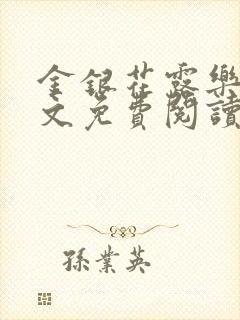 金銀花露樂
文免費閱讀
孫業英